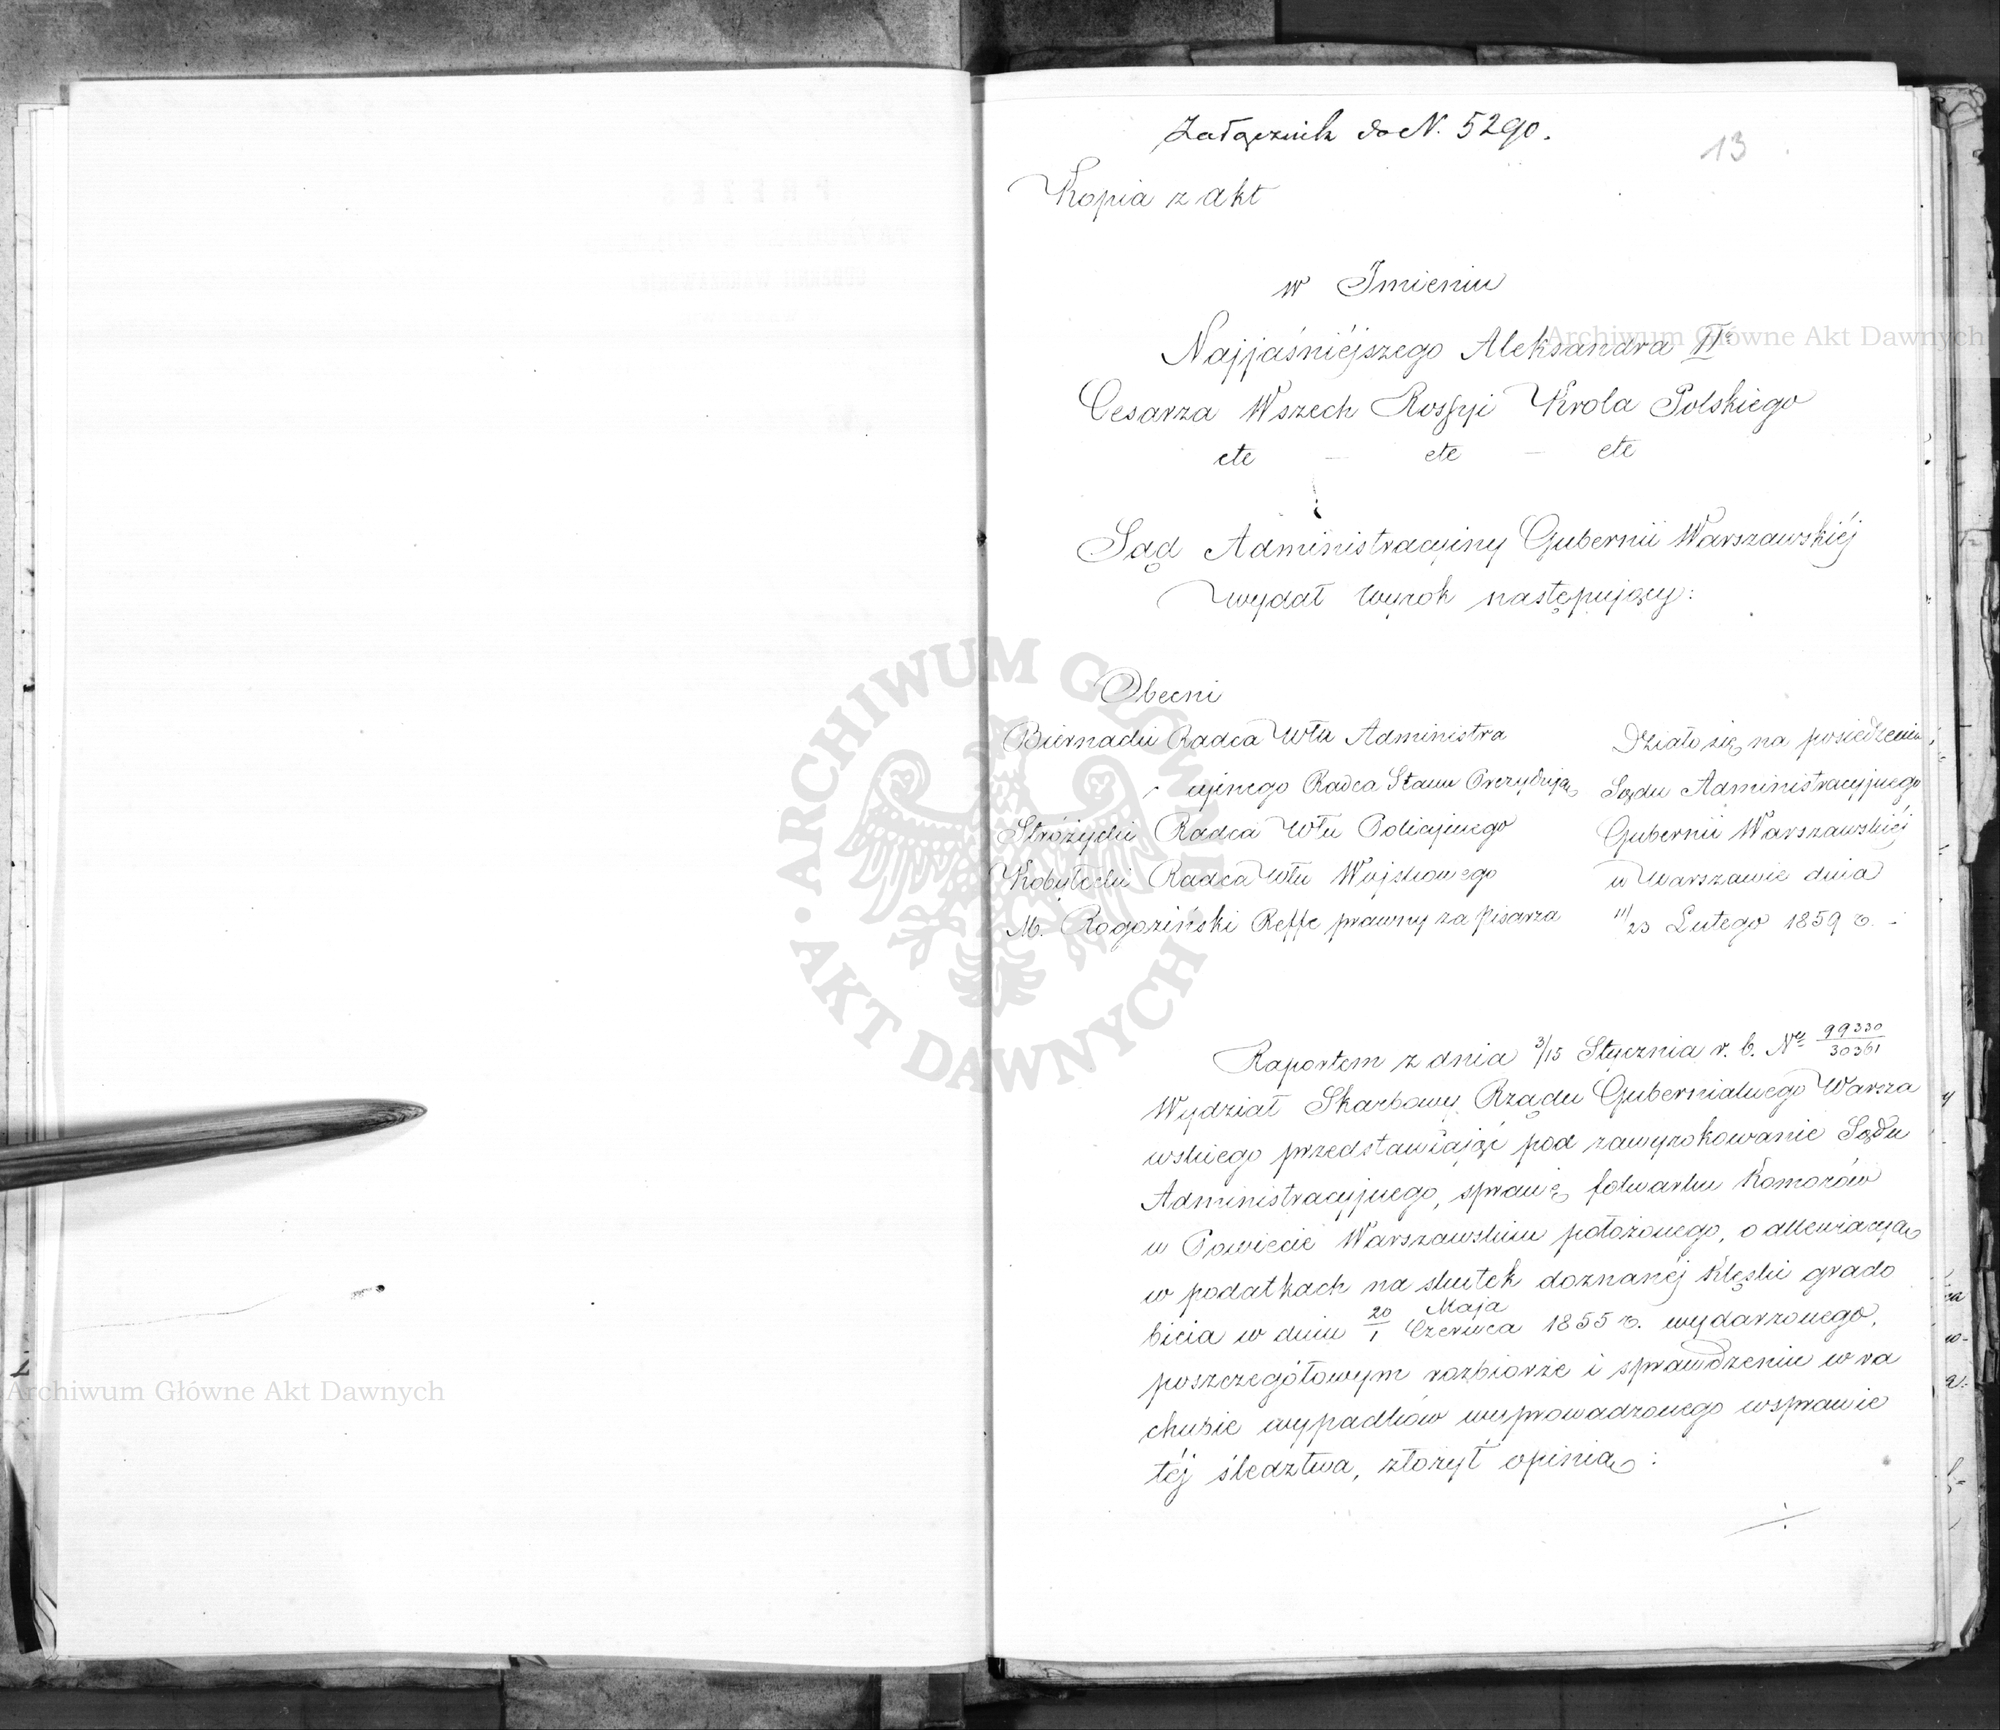 Załącznik do N. 5290.
13
Kopia z akt
w Imieniu
Najjaśniéjszego Aleksandra II
Cesarza Wszech Rossyi Krola Polskiego
etc — etc — etc
Sąd Administracyiny Gubernii Warszawskiéj
wydał wyrok następujący:
Obecni
Biernacki Radca Włu Administra
cyjnego Radca Stanu Prezydując
Stróżycki Radca Włu Policyjnego
Kobyłecki Radca Włu Wojskowego
M. Rogoziński Reffe prawny za Pisarza
Działo się na posiedzeniu
Sądu Administracyjnego
Gubernii Warszawskiéj
w Warszawie dnia
11/23 Lutego 1859 r. -
Raportem z dnia 3/15 Stycznia r. b. No 99330/30361
Wydział Skarbowy Rządu Gubernialnego Warsza
wskiego przedstawiając pod zawyrokowanie Sądu
Administracyjnego, sprawę folwarku Komorów
w Powiecie Warszawskim położonego, o allewiacyą
w podatkach na skutek doznanéj klęski grado
bicia w dniu 20 Maja/1 Czerwca 1855 r. wydarzonego,
poszczegółowym rozbiorze i sprawdzeniu w ra
chubie wypadków wyprowadzonego wsprawie
téj śledztwa, złożył opinią:
Archiwum Główne Akt Dawnych
ARCHIWUM GŁÓWNE AKT DAWNYCH
Archiwum Główne Akt Dawnych